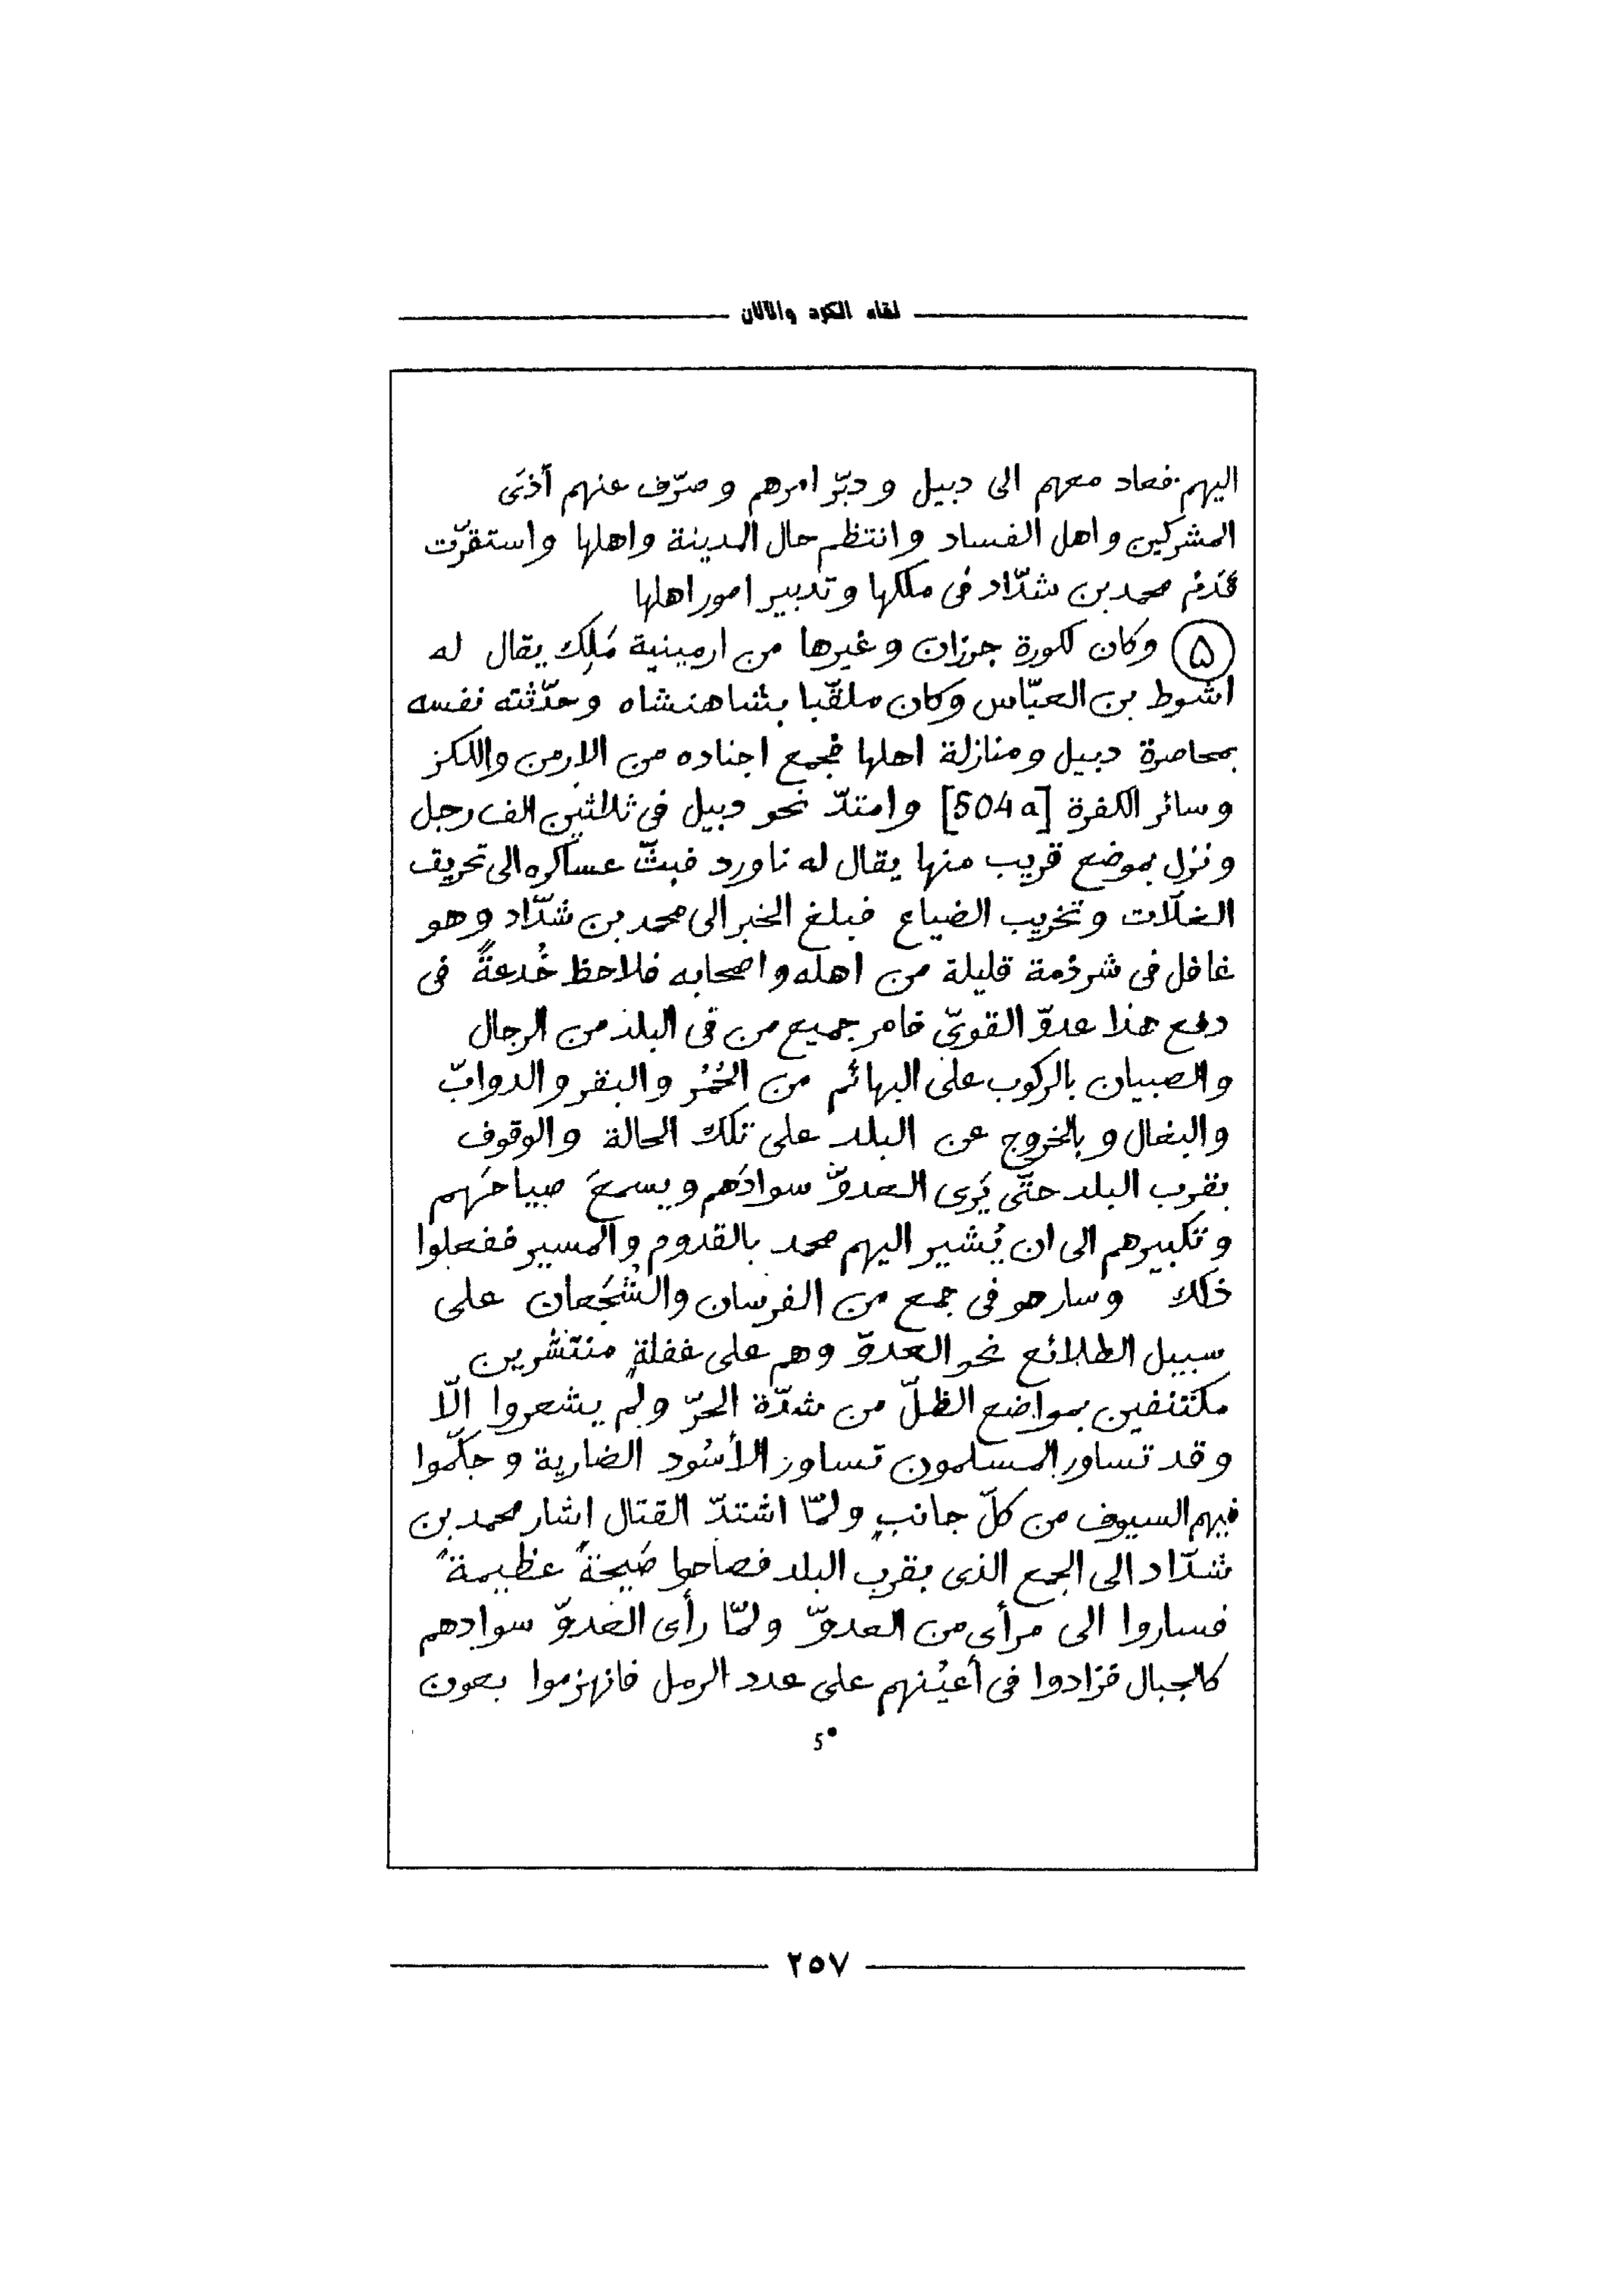 لقاء الكرد والآلان
اليهم فعاد معهم الى دبيل و دبّر امرهم و صرّف عنهم أذَى
المشركين و اهل الفساد و انتظم حال المدينة واهلها واستقرّت
قدم محمد بن شدّاد فى ملكها و تدبير امور اهلها
۵ وكان لكورة جرزان و غيرها من ارمينية مَلِك يقال له
اشوط بن العبّاس وكان ملقّبا بشاهنشاه وحدّثته نفسه
بمحاصرة دبيل ومنازلة اهلها فجمع اجناده من الارمن واللكز
وسائر الكفرة [504a] وامتدّ نحو دبيل فى ثلاثين الف رجل
ونزل بموضع قريب منها يقال له ناورد فبثّ عساكره الى تحريف
الغلّات وتخريب الضياع فبلغ الخبر الى محمد بن شدّاد وهو
غافل فى شرذمة قليلة من اهله واصحابه فلاحظ خُدعةً فى
دفع هذا عدوّ القوىّ فامر جميع من فى البلد من الرجال
والصبيان بالركوب على البهائم من الحُمُر والبقر والدوابّ
والبغال و بالخروج عن البلد على تلك الحالة والوقوف
بقرب البلد حتّى يَرى العدوّ سوادَهم ويسمعَ صياحَهم
وتكبيرهم الى ان يُشير اليهم محمد بالقدوم والمسير ففعلوا
ذلك وسار هو فى جمع من الفرسان والشُجَعان على
سبيل الطلائع نحو العدوّ وهم على غفلةٍ منتشرين
مكتنفين بمواضع الظلّ من شدّة الحرّ ولم يشعروا الّا
وقد تساور المسلمون تساور الأسُود الضارية و حكّموا
فيهم السيوف من كلّ جانبٍ ولمّا اشتدّ القتال اشار محمد بن
شدّاد الى الجمع الذى بقرب البلد فصاحوا صَيحةً عظيمةً
فساروا الى مرأى من العدوّ ولمّا رأى العدوّ سوادهم
كالجبال فزادوا فى أعيُنهم على عدد الرمل فانهزموا بعون
5•
٢٥٧